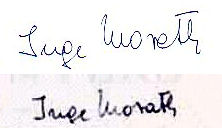 Inge Morath
Inge Morath